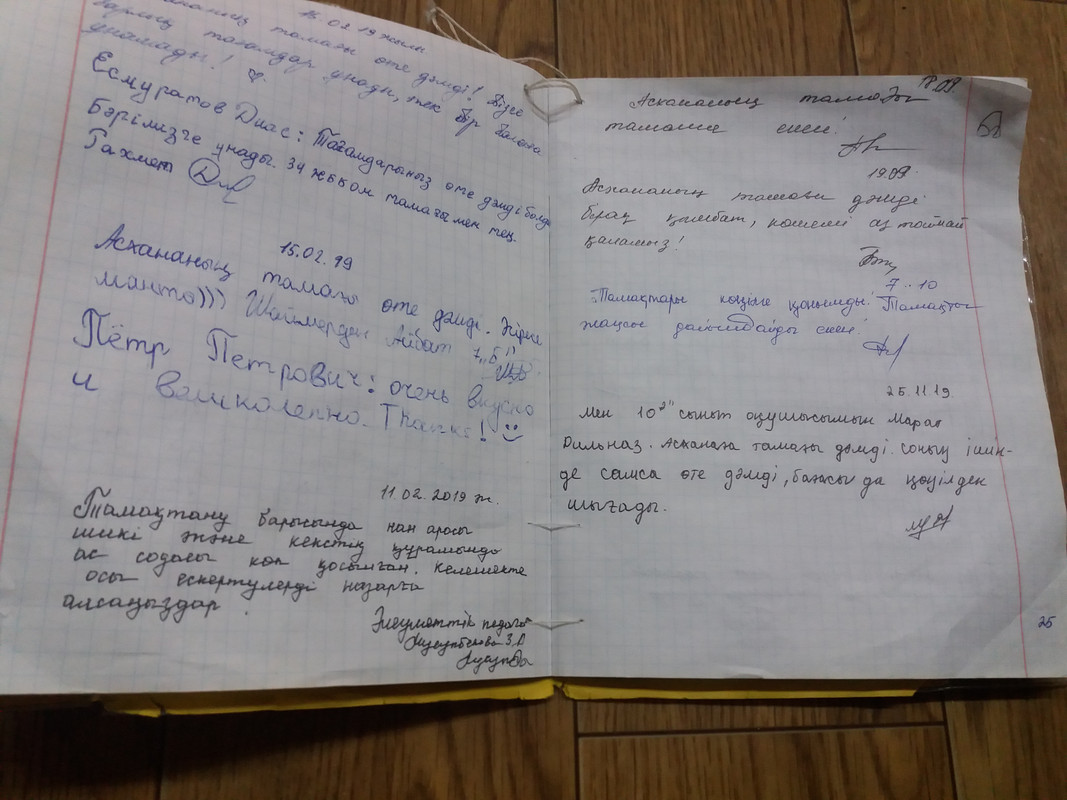 15.02.19 жылы
Асхананың тамағы өте дәмді! Бізге
барлық тағамдар ұнады, тек бір балаға
ұнамады!
Есмуратов Диас: Тағамдарыңыз өте дәмді болды
Бәрімізге ұнады. 34 жбком тамағы мен тең.
Рахмет
15.02.19
Асхананың тамағы өте дәмді. Әсіресе
манты))) Шаймардан Айбат 7 "б"
Пётр Петрович: очень вкусно
и великолепно. Thanks!
11.02.2019 ж.
Тамақтану барысында нан арасы
шикі және кекстің құрамында
ас содасы көп қосылған. Келешекте
осы ескертулерді назарға
алсаңыздар.
Әлеуметтік педагог
З.А
18.09.
Асхананың тамағы
тамаша екен!
19.09.
Асхананың тамағы дәмді
бірақ қымбат, көлемі аз тоймай
қаламыз!
7.10
Тамақтары көңілге қонымды! Тамақты
жақсы дайындайды екен!
25.11.19.
Мен 10 "сынып оқушысымын Марат
Дильназ. Асхана тамағы дәмді. Соның ішін-
де самса өте дәмді, бағасы да көңілден
шығады.
25